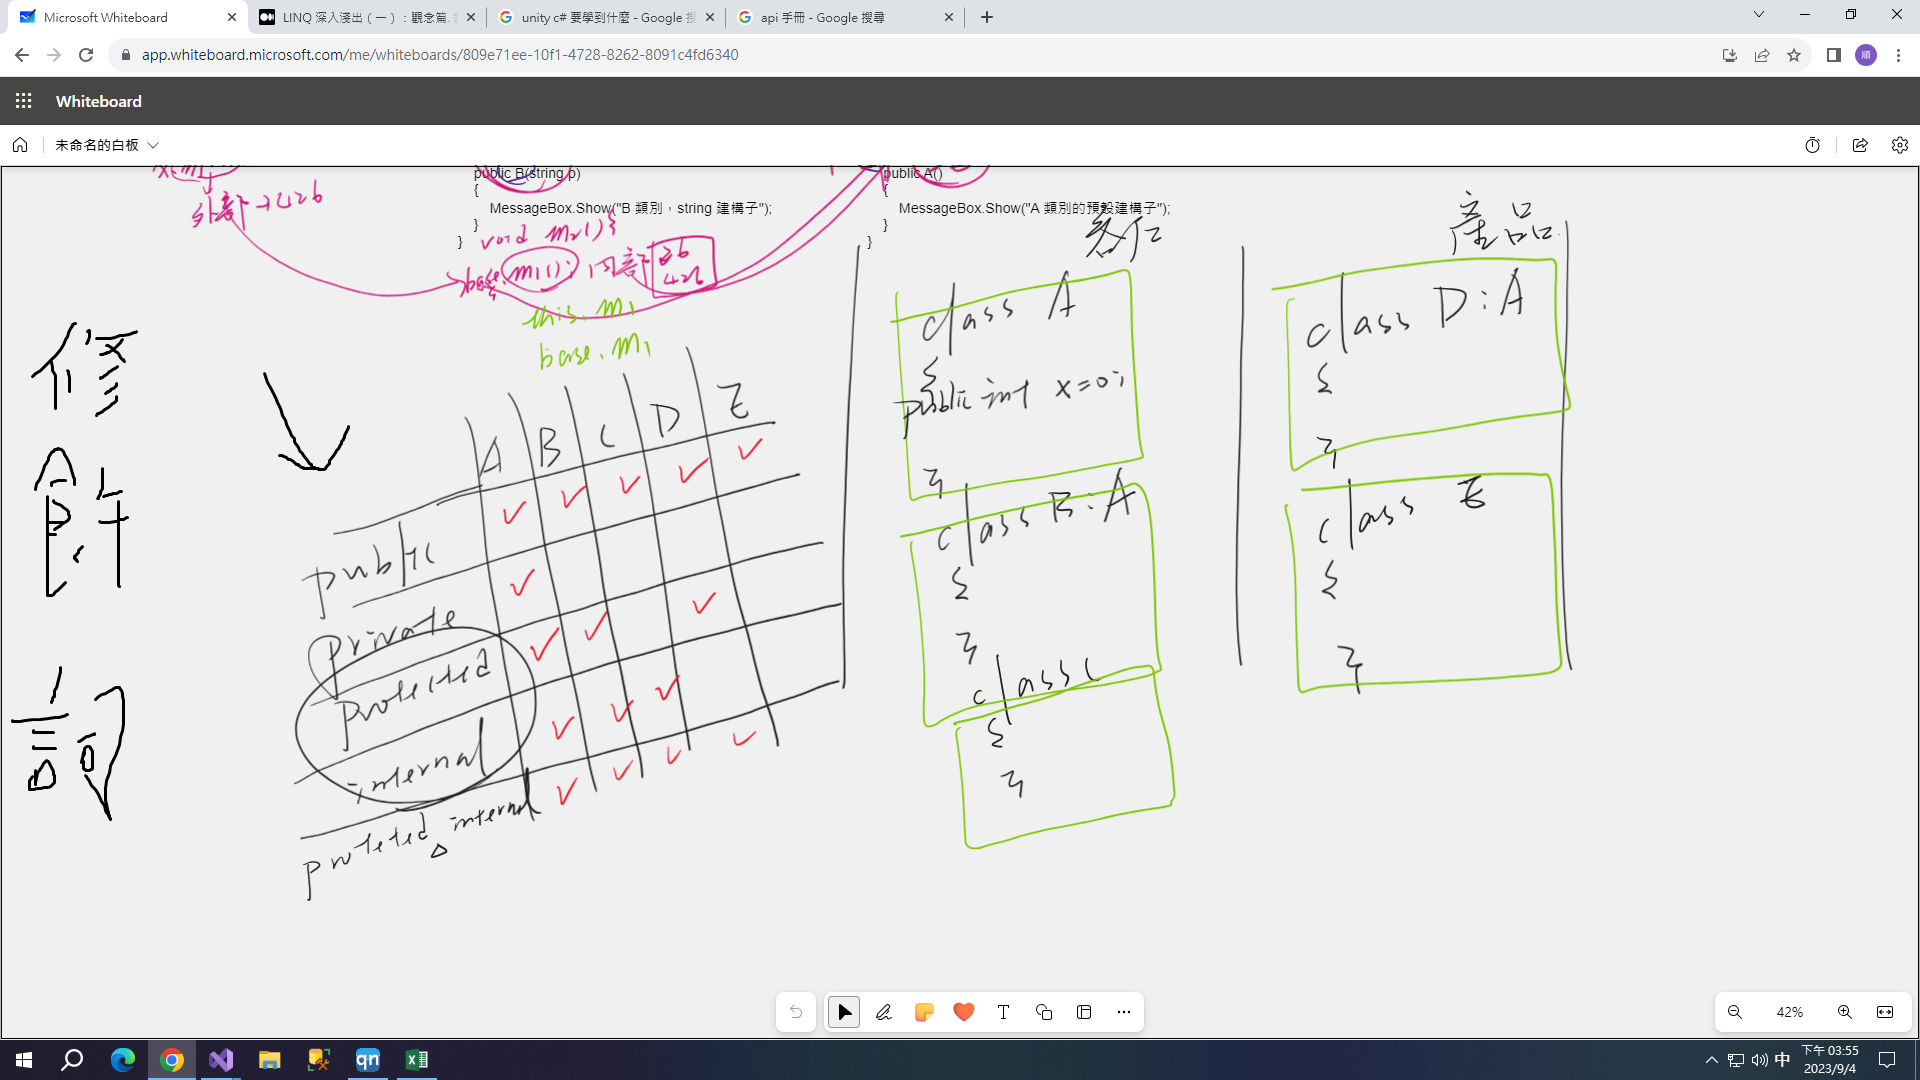 Microsoft Whiteboard
LINQ 深入淺出 ( 一 ) : 觀念篇.
unity c# 要學到什麼 - Google 搜
api 手冊 - Google 搜尋
app.whiteboard.microsoft.com/me/whiteboards/809e71ee-10f1-4728-8262-8091c4fd6340
順
Whiteboard
未命名的白板
public B(string p)
{
MessageBox.Show("B 類別，string 建構子");
}
}
void m2(){
base.m1(); 內部
this.m1
base.m1
外部
public A()
{
MessageBox.Show("A 類別的預設建構子");
}
}
修
飾
詞
A B C D E
public ✓ ✓ ✓ ✓ ✓
private ✓
protected ✓ ✓ ✓
internal ✓ ✓ ✓
proteted internal ✓ ✓ ✓ ✓
class A
{
public int x=0;
}
class B:A
{
}
class C
{
}
產品
class D:A
{
}
class E
{
}
42%
qn
中
下午 03:55
2023/9/4